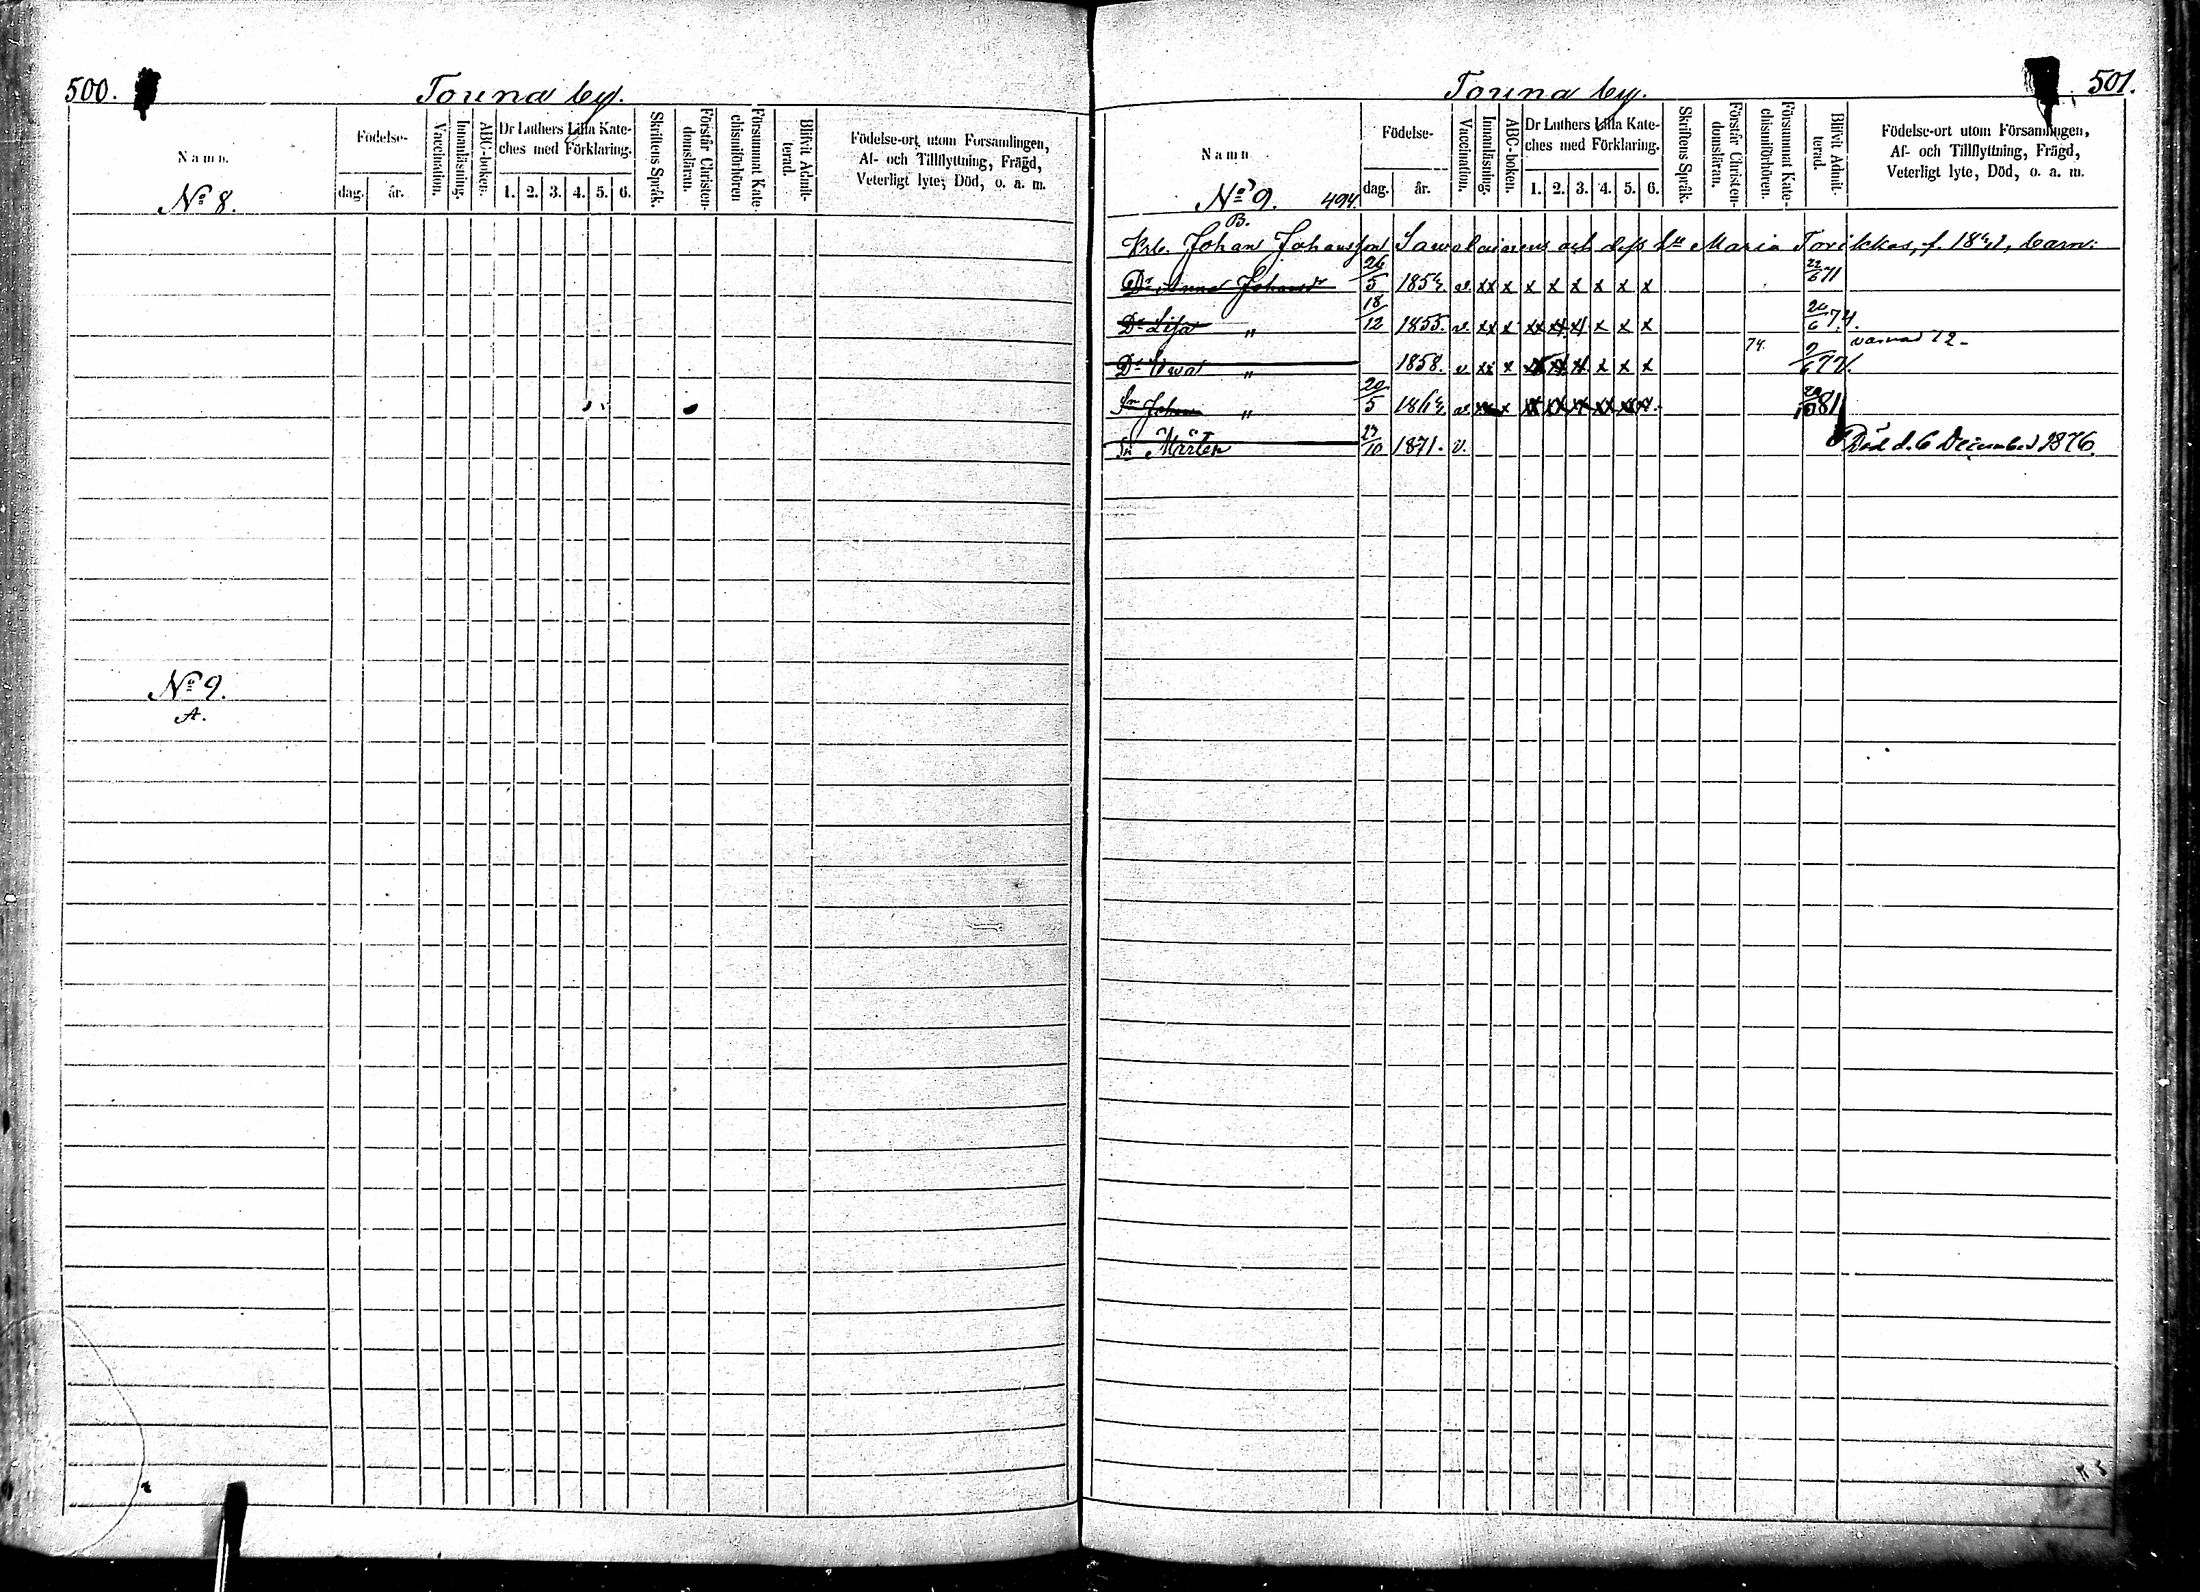 500.
Touna by.
Namn.
Födelse-
dag.
år.
Vaccination.
Innanläsning.
ABC-boken.
Dr Luthers Lilla Kate-
ches med Förklaring.
1. 2. 3. 4. 5. 6.
Skriftens Språk.
Förstår Christen-
domsläran.
Försummat Kate-
chismiförhören
Blifvit Admit-
terad.
Födelse-ort utom Forsamlingen,
Af- och Tillflyttning, Frägd,
Veterligt lyte, Död, o. a. m.
No 8.
No 9.
A.
501.
Touna by.
Namn
Födelse-
dag.
år.
Vaccination.
Innanläsning.
ABC-boken.
Dr Luthers Lilla Kate-
ches med Förklaring.
1. 2. 3. 4. 5. 6.
Skriftens Språk.
Förstår Christen-
domsläran.
Försummat Kate-
chismiförhören.
Blifvit Admit-
terad.
Födelse-ort utom Församlingen,
Af- och Tillflyttning, Frägd,
Veterligt lyte, Död, o. a. m.
No 9. 494.
B.
Johan Johansson Sawolainens och dess Maria f. barn:
Dr Anna Johansdr 26/5 v. xx x x x x x x x 22/6 71
Dr Lisa " 18/12 1855. v. xx x xx xx xx x x x 20/6 74.
Dr Ewa " 1858. v xx x x x x 74. 77.
Sn Johan " 20/5 v. x 81
Sn Mårten 27/10 1871. v. Död d. 6 December 1876.